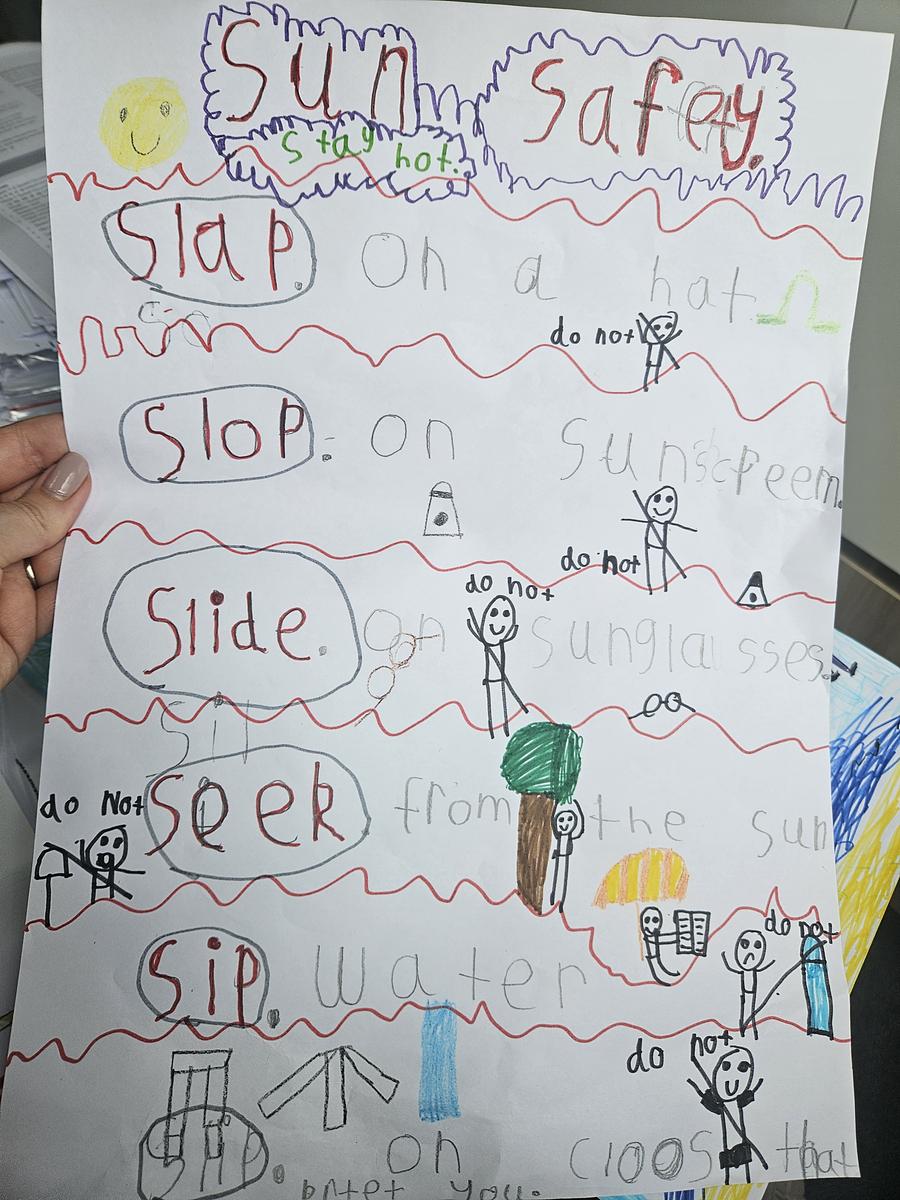 Sun Safety.
stay hot.
Slap. On a hat
do not
Slop: on Sunscreem.
do not
do not
Slide. On sunglasses.
Seek from the sun
do Not
do not
Sip. Water
do not
Slip. on cloos that